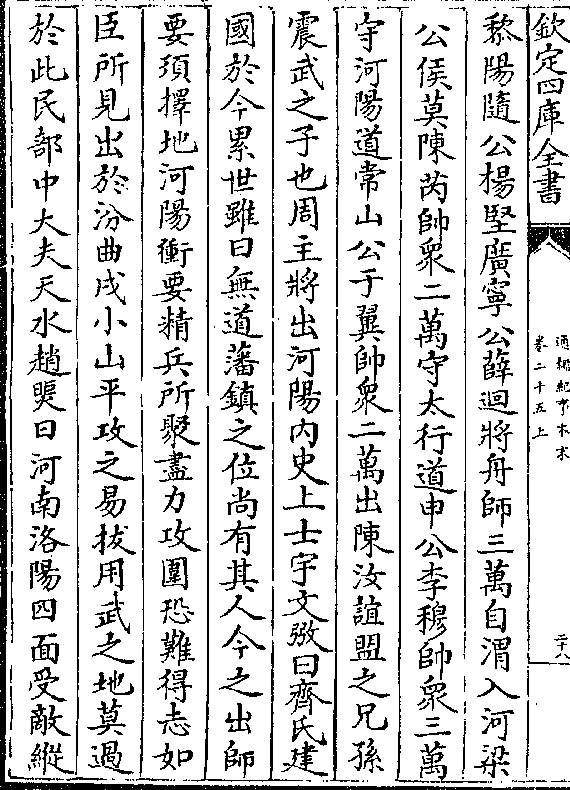 欽定四庫全書
通鑑紀事本末
卷二十五上
二十八
黎陽隨公楊堅廣寧公薛迴將舟師三萬自渭入河梁
公侯莫陳芮帥衆二萬守太行道申公李穆帥衆三萬
守河陽道常山公于翼帥衆二萬出陳汝誼盟之兄孫
震武之子也周主將出河陽内史上士宇文㢸曰齊氏建
國於今累世雖曰無道藩鎮之位尚有其人今之出師
要須擇地河陽衝要精兵所聚盡力攻圍恐難得志如
臣所見出於汾曲戍小山平攻之易拔用武之地莫過
於此民部中大夫天水趙煚曰河南洛陽四面受敵縱